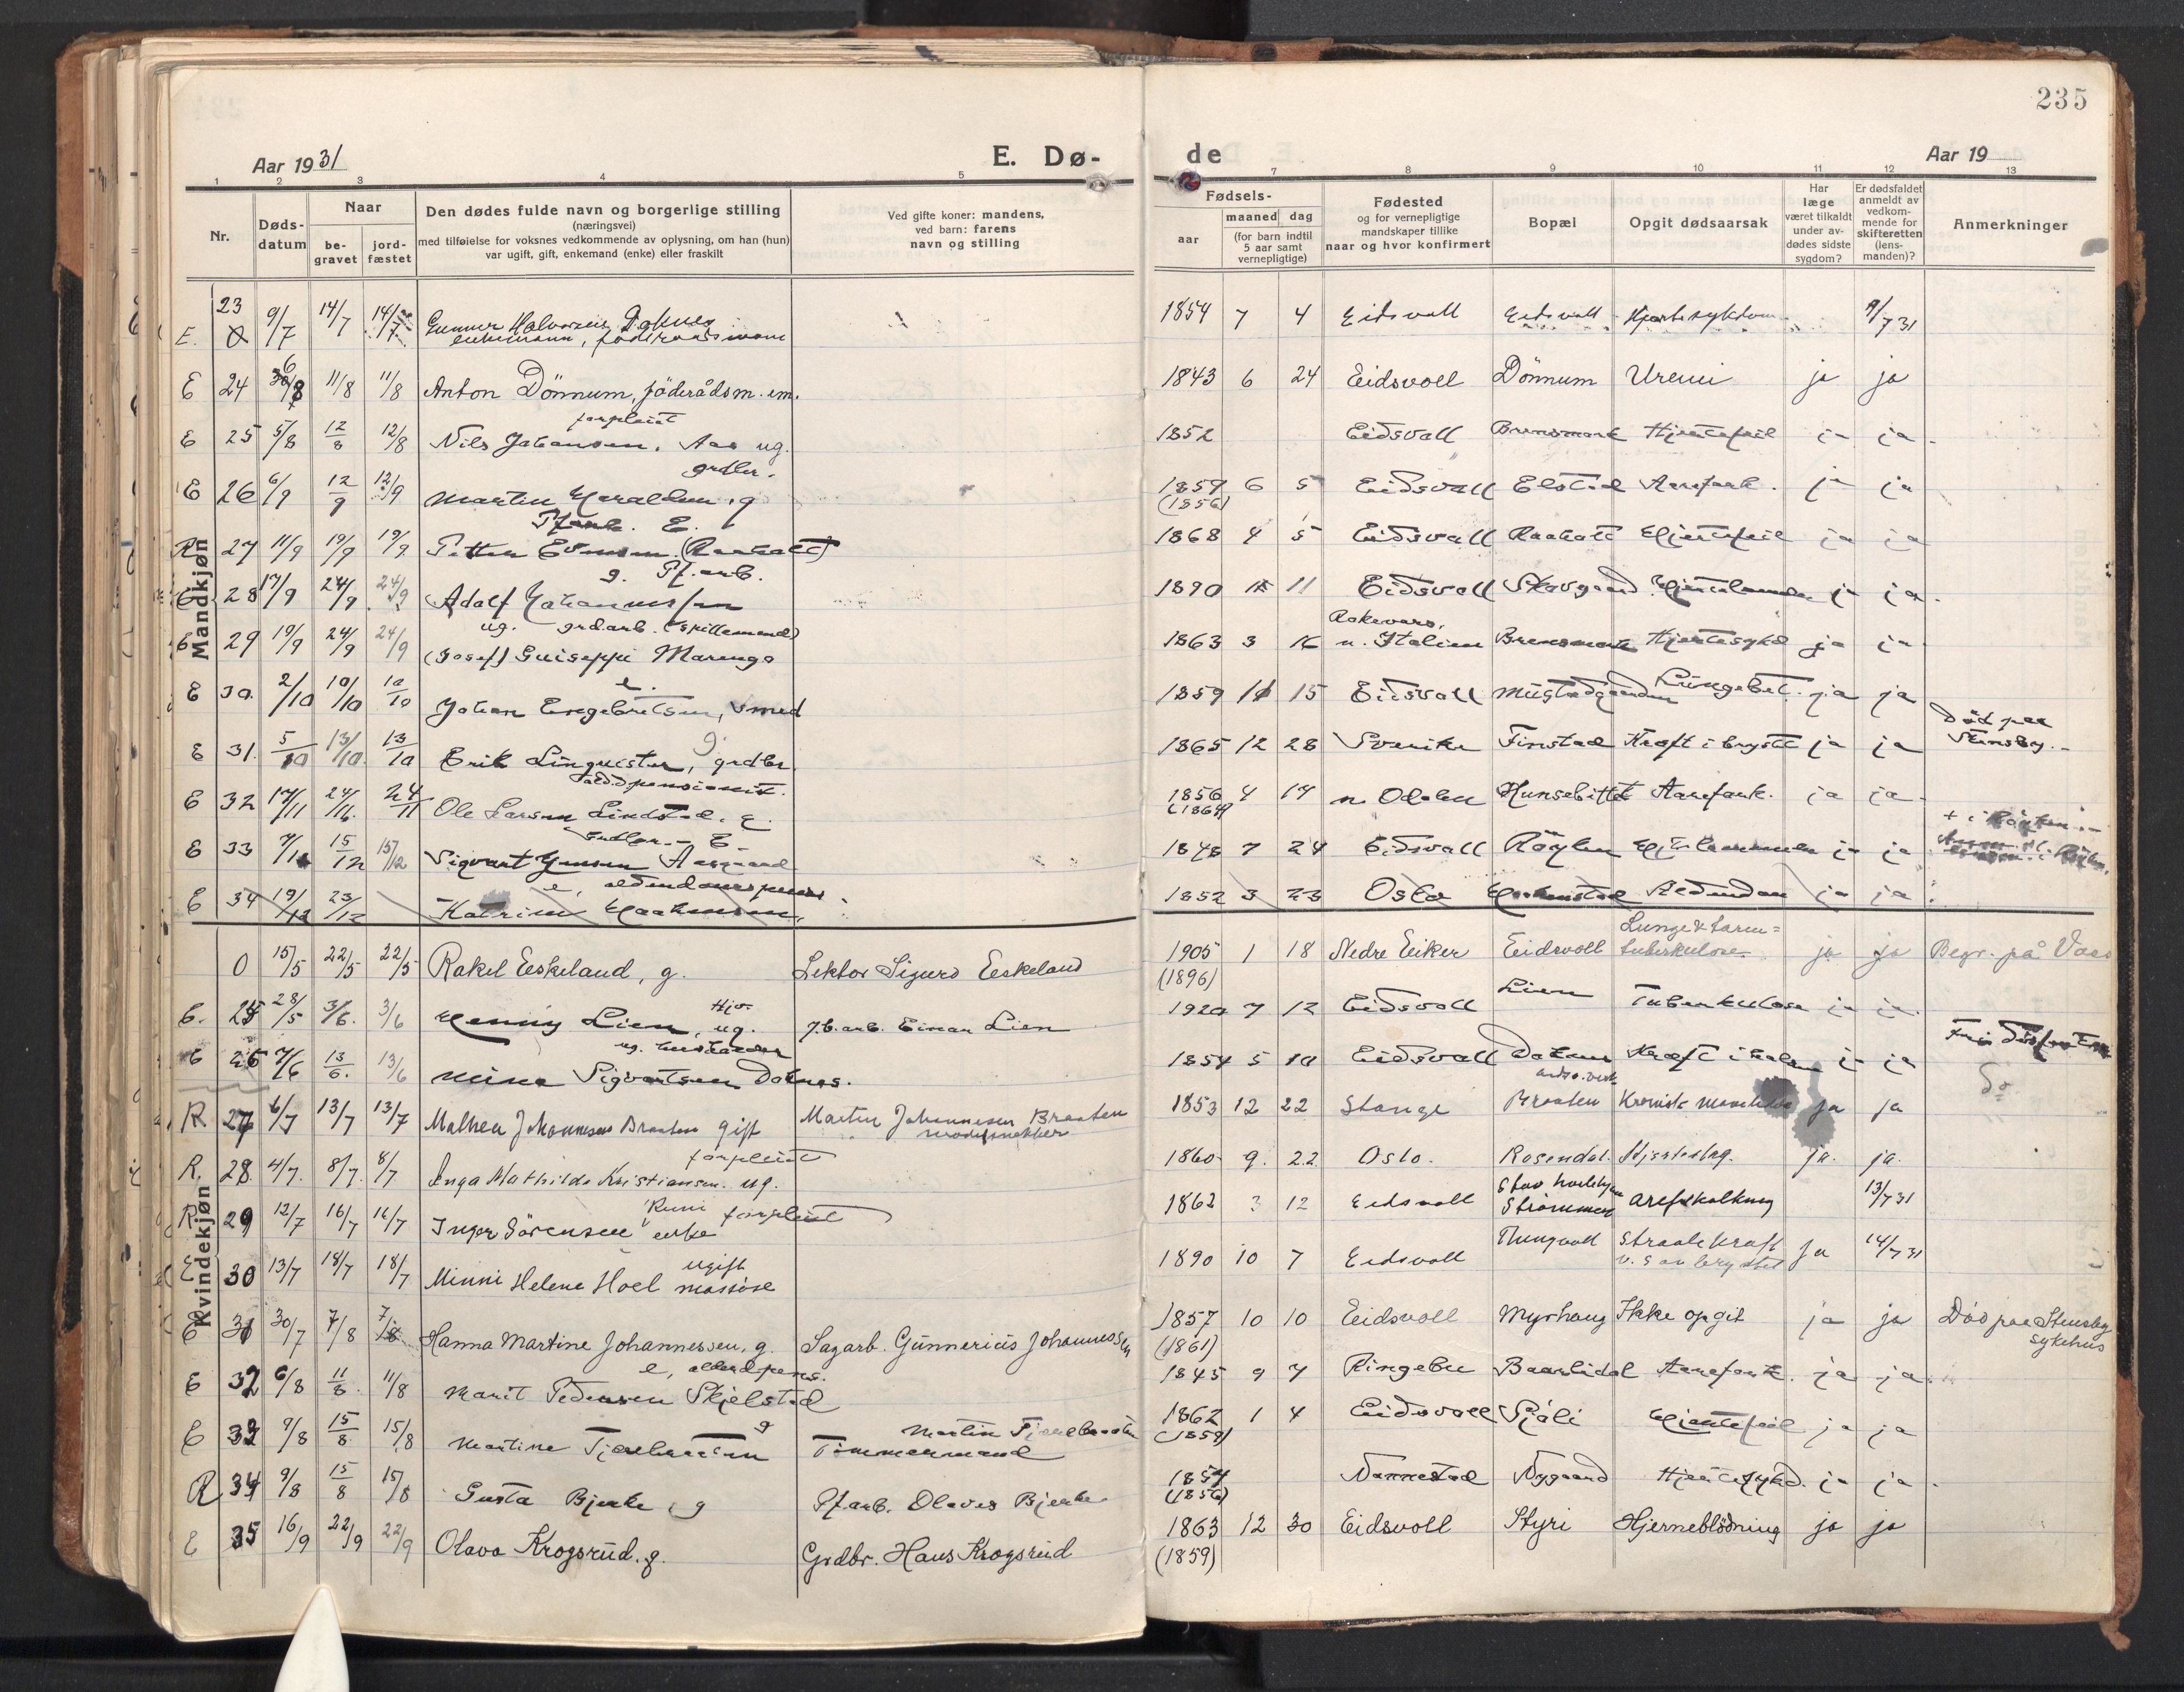 235
Aar 1931
E. Dø-
de
Aar 19
1 2 3 4 5 7 8 9 10 11 12 13
Nr.
Døds-
datum
Naar
be-
gravet
jord-
fæstet
Den dødes fulde navn og borgerlige stilling
(næringsvei)
med tilføielse for voksnes vedkommende av oplysning, om han (hun)
var ugift, gift, enkemand (enke) eller fraskilt
Ved gifte koner: mandens,
ved barn: farens
navn og stilling
Fødsels-
aar
maaned dag
(for barn indtil
5 aar samt
vernepligtige)
Fødested
og for vernepligtige
mandskaper tillike
naar og hvor konfirmert
Bopæl
Opgit dødsaarsak
Har
læge
været tilkaldt
under av-
dødes sidste
sygdom?
Er dødsfaldet
anmeldt av
vedkom-
mende for
skifteretten
(lens-
manden)?
Anmerkninger
Mandkjøn
E. 23 9/7 14/7 14/7 Gunner Halvorsen Doknes
enkemann, føderaadsmann
1854 7 4 Eidsvoll Eidsvoll Hjertesykdom 9/7 31
E 24 6/8 11/8 11/8 Anton Dönnum, föderådsm. em.
1843 6 24 Eidsvoll Dönnum Uremi ja ja
forpleiet
E 25 5/8 12/8 12/8 Nils Johansen, Aas ug.
1852 Eidsvall Brensmork Hjertefeil ja ja
grdbr.
E 26 6/9 12/9 12/9 Martin Haraldsen, g
1857 6 5 Eidsvall Elstad Aarefork. ja ja
(1856)
Pf.arb. E.
R 27 11/9 19/9 19/9 Petter Evensen (Raaholt)
1868 4 5 Eidsvall Raaholt Hjertefeil ja ja
g. Pf.arb.
E 28 17/9 24/9 24/9 Adolf Johannessen
1890 11 Eidsvall Skovgaard Hjertelammelse ja ja
ug. grd.arb. (spillemand)
E 29 19/9 24/9 24/9 (Josef) Guiseppi Marengo
1863 3 16 Rokevaro,
n. Italien Brensmork Hjertesykd ja ja
e.
E 30. 2/10 10/10 10/10 Johan Engebretsen, smed
1859 11 15 Eidsvall Mustadgaarden Lungebet. ja ja
g.
E 31. 5/10 13/10 13/10 Erik Linquister, grdbr.
1865 12 28 Sverike Finstad Kræft i brystt ja ja Död paa
Stensby.
aldd.pensionist.
E 32 17/11 24/11 24/11 Ole Larsen Lindstad. E.
1856 4 19 n Odalen Hunsebittet Aarefork. ja ja
(1864)
E 33 7/12 15/12 15/12 Sigvart Jensen Aasgaard
1848 7 24 Eidsvall Röglen ja ja
e, alderdomspens
E 34 19/12 23/12 Katrine Haakensen,
1852 3 23 Oslo Alderdom ja ja
Kvindekjøn
0 15/5 22/5 22/5 Rakel Eeskeland, g. Lektor Sigurd Eeskeland
1905 1 18 Nedre Eiker Eidsvoll Lunge & tarm=
tuberkulose ja ja Begr. på Voss
(1896)
E. 25 28/5 3/6. 3/6 Henny Lien, ug. J.b.arb. Einar Lien
1920 7 12 Eidsvoll Lien Tuberkulose ja ja
ug. husholder
E 26 7/6 13/6. 13/6 Mina Sigvartsen Doknes.
1854 5 10 Eidsvall Doknes Kræft i ja ja
R 27 6/7 13/7 13/7 Mathea Johannesen Braaten gift Martin Johannesen Braaten
modelsnekker
1853 12 22 Stange Braaten Kronisk ja ja
forpleiet
R. 28. 4/7. 8/7. 8/7 Inga Mathilde Kristiansen. ug.
1860 9. 22. Oslo. Rosendal. Hjerteslag. ja. ja.
forpleiet
R. 29 12/7 16/7 16/7 Inger Sörensen enke
1862 3 12 Eidsvoll Strömmen arefokalkning 13/7 31
ugift
E 30 13/7 18/7 18/7 Minni Helene Hoel massöse
1890 10 7 Eidsvoll Thungvoll Straalekraft
v. s av brystet ja 14/7 31
E 31 30/7 7/8 7/8 Hanna Martine Johannessen, g. Sagarb. Gunnerius Johannessen
1857 10 10 Eidsvoll Myrhaug Ikke opgit ja ja Död paa Stensby
sykehus
(1861)
e, alderd.pens.
E 32 6/8 11/8. 11/8 Marit Pedersen Skjelstad
1845 9 7 Ringebu Baarlidal Aarefork. ja ja
g
E 33 9/8 15/8 15/8 Martine Tjernbraaten
Tömmermand
1862 1 4 Eidsvoll Hjertefeil ja ja
(1859)
R 34 9/8 15/8 15/8 Gusta Bjerke, g Pf.arb. Olaves Bjerke
1857 Nannestad Nygaard Hjertesykd. ja ja
(1856)
E 35 16/9 22/9 22/9 Olava Krogsrud. g. Grdbr. Hans Krogsrud
1863 12 30 Eidsvoll Styri Hjerneblödning ja ja
(1859)